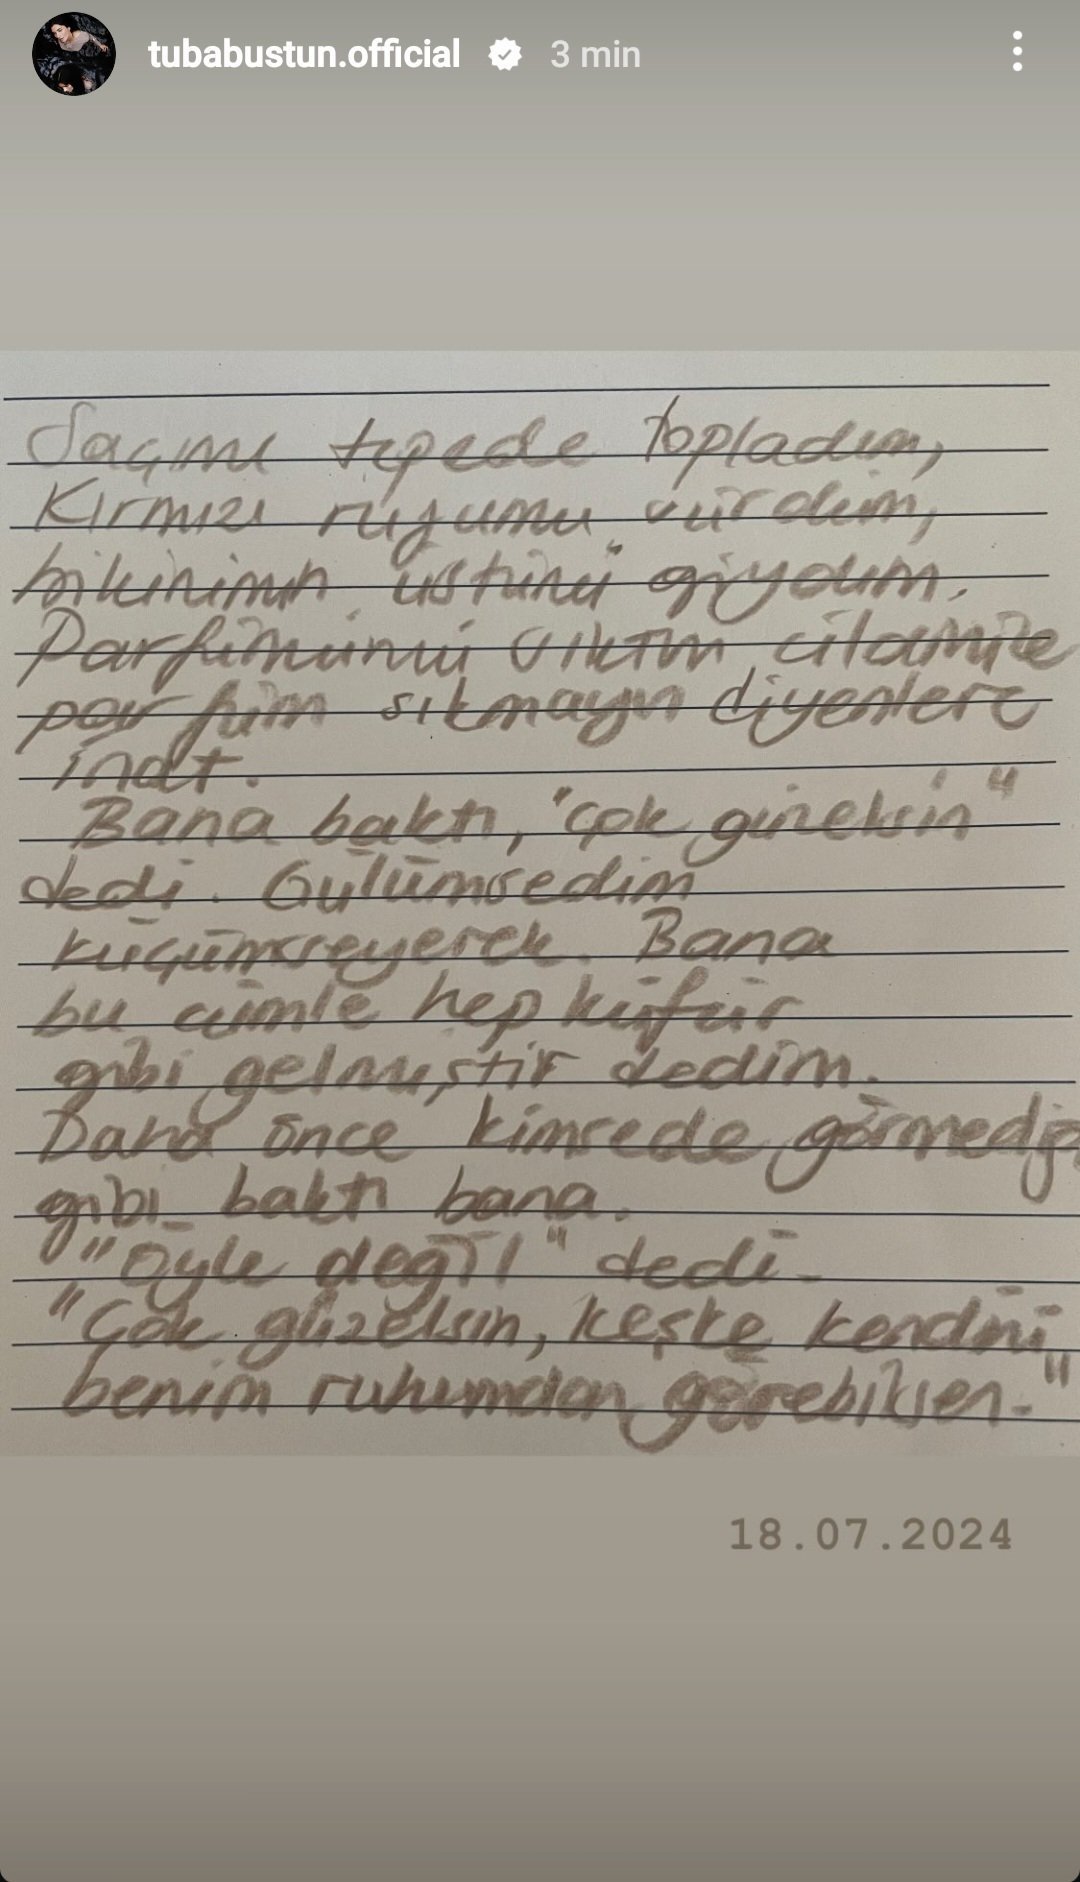 tubabustun.official 3 min
Saçımı tepede topladım,
Kırmızı rujumu sürdüm,
bikinimin üstünü giydim.
Parfümümü sıktım cildinize
parfüm sıkmayın diyenlere
inat.
Bana baktı, "çok güzelsin"
dedi. Gülümsedim
küçümseyerek. Bana
bu cümle hep küfür
gibi gelmiştir dedim.
Daha önce kimsede görmediği
gibi baktı bana.
"Öyle değil" dedi.
"Çok güzelsin, keşke kendini
benim ruhumdan görebilsen."
18.07.2024